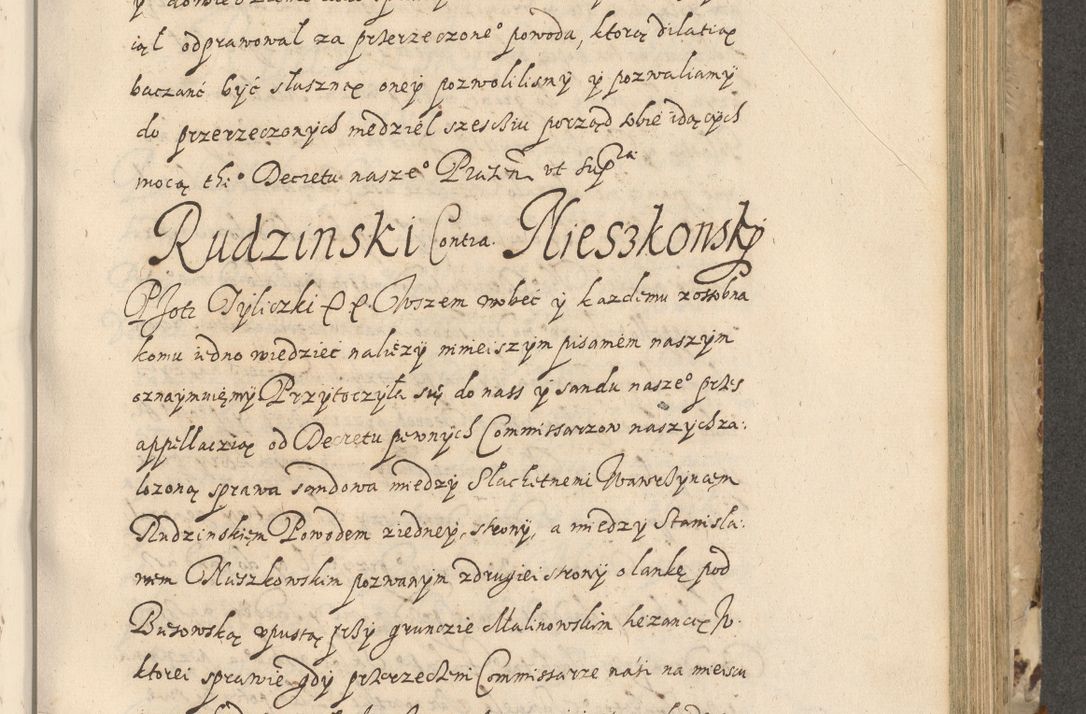 iął odprawował za przerzeczone° powoda, ktorą dilatią
baczanć być słuszną oney pozwolilismy y pozwaliamy
do przerzeczonych niedziel szesciu porząd sobie idących
mocą thi° Decretu nasze° Præsen. ut supra
Rudzinski Contra Nieszkonsky
PJotr Tyliczki & & Wszem wobeć y kazdemu zossobna
komu iedno wiedzieć nalięzy ninieiszym pisamem naszym
oznaymuięmy Przytoczyła się do nass y sandu nasze° przes
appellaczią od Decretu pewnych Commissarzow naszych za:
lozoną sprawa sandowa miedzy Slachetnemi Wawrzyncęm
Rudzinskięm Powodem ziedney, strony, a miedzy Stanisla:
wem Maszkowskim pozwanym zdrugiei strony o lankę pod
Buzowską przy grunczie Malinowskim lezancą W
ktorei sprawie gdy przerzeczeni Commissarze nási na miescu